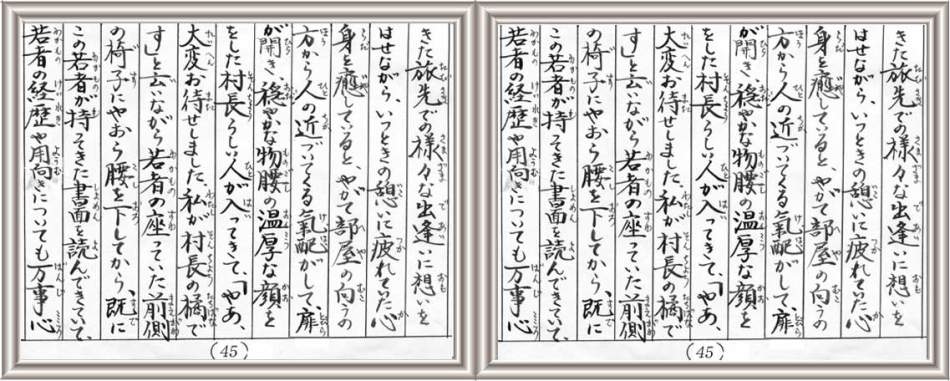 きた旅先での様々な出逢いに想いを
はせながら、いっときの憩いに疲れていた心
身を癒していると、やがて部屋の向うの
方から人の近づいてくる氣配がして、扉
が開き、穏やかな物腰の温厚な顔を
をした村長らしい人が入ってきて、「やあ、
大変お待せしました。私が村長の橘で
す」と云いながら若者の座っていた前側
の椅子にやおら腰を下してから、既に
この若者が持ってきた書面を読んできていて、
若者の経歴や用向きについても万事心
(45)
きた旅先での様々な出逢いに想いを
はせながら、いっときの憩いに疲れていた心
身を癒していると、やがて部屋の向うの
方から人の近づいてくる氣配がして、扉
が開き、穏やかな物腰の温厚な顔を
をした村長らしい人が入ってきて、「やあ、
大変お待せしました。私が村長の橘で
す」と云いながら若者の座っていた前側
の椅子にやおら腰を下してから、既に
この若者が持ってきた書面を読んできていて、
若者の経歴や用向きについても万事心
(45)